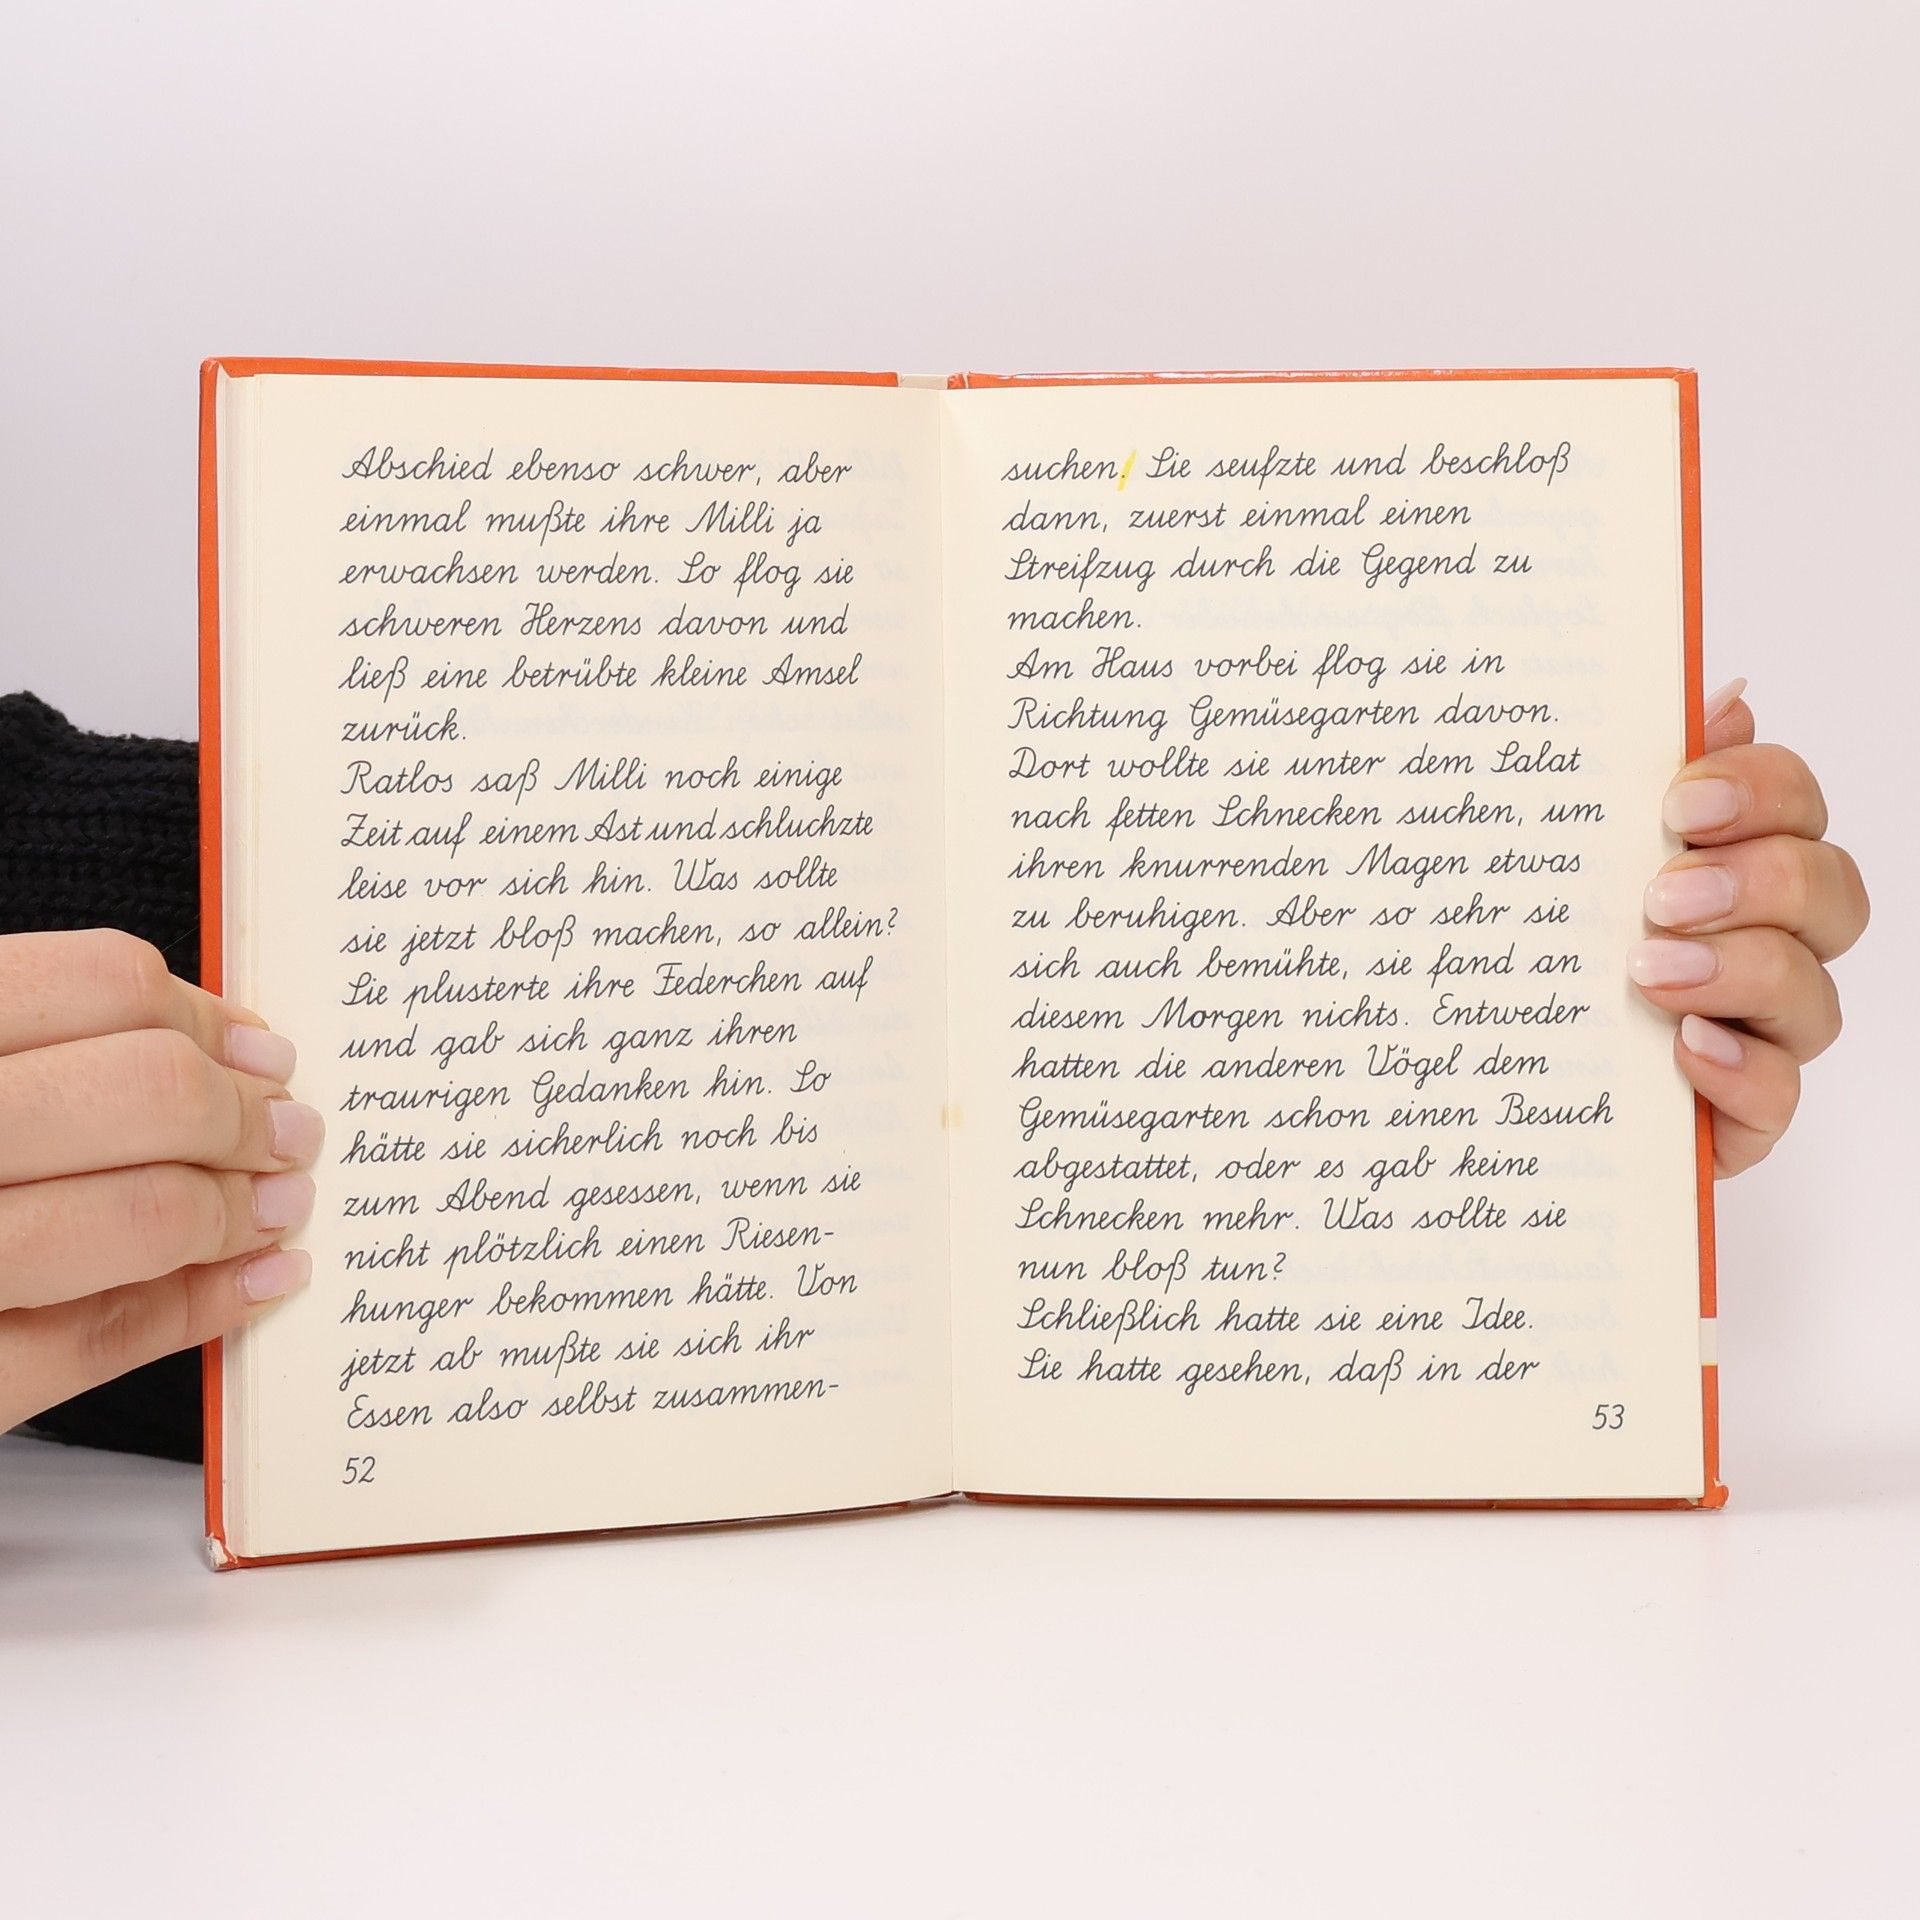 Abschied ebenso schwer, aber
einmal mußte ihre Milli ja
erwachsen werden. So flog sie
schweren Herzens davon und
ließ eine betrübte kleine Amsel
zurück.
Ratlos saß Milli noch einige
Zeit auf einem Ast und schluchzte
leise vor sich hin. Was sollte
sie jetzt bloß machen, so allein?
Sie plusterte ihre Federchen auf
und gab sich ganz ihren
traurigen Gedanken hin. So
hätte sie sicherlich noch bis
zum Abend gesessen, wenn sie
nicht plötzlich einen Riesen-
hunger bekommen hätte. Von
jetzt ab mußte sie sich ihr
Essen also selbst zusammen-
52
suchen. Sie seufzte und beschloß
dann, zuerst einmal einen
Streifzug durch die Gegend zu
machen.
Am Haus vorbei flog sie in
Richtung Gemüsegarten davon.
Dort wollte sie unter dem Salat
nach fetten Schnecken suchen, um
ihren knurrenden Magen etwas
zu beruhigen. Aber so sehr sie
sich auch bemühte, sie fand an
diesem Morgen nichts. Entweder
hatten die anderen Vögel dem
Gemüsegarten schon einen Besuch
abgestattet, oder es gab keine
Schnecken mehr. Was sollte sie
nun bloß tun?
Schließlich hatte sie eine Idee.
Sie hatte gesehen, daß in der
53